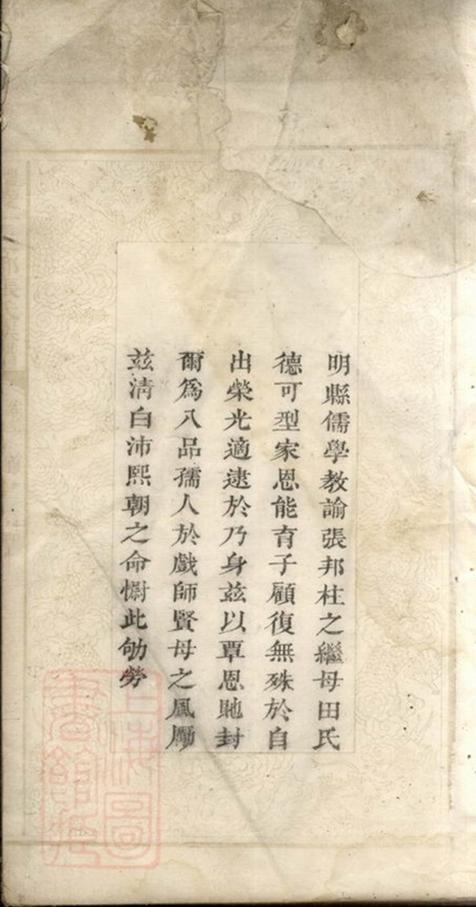 明縣儒學教諭張邦柱之繼母田氏
德可型家恩能育子顧復無殊於自
出榮光適逮於乃身茲以覃恩貤封
爾爲八品孺人於戲師賢母之風勵
茲淸白沛熙朝之命慰此劬勞
上海圖
書館藏